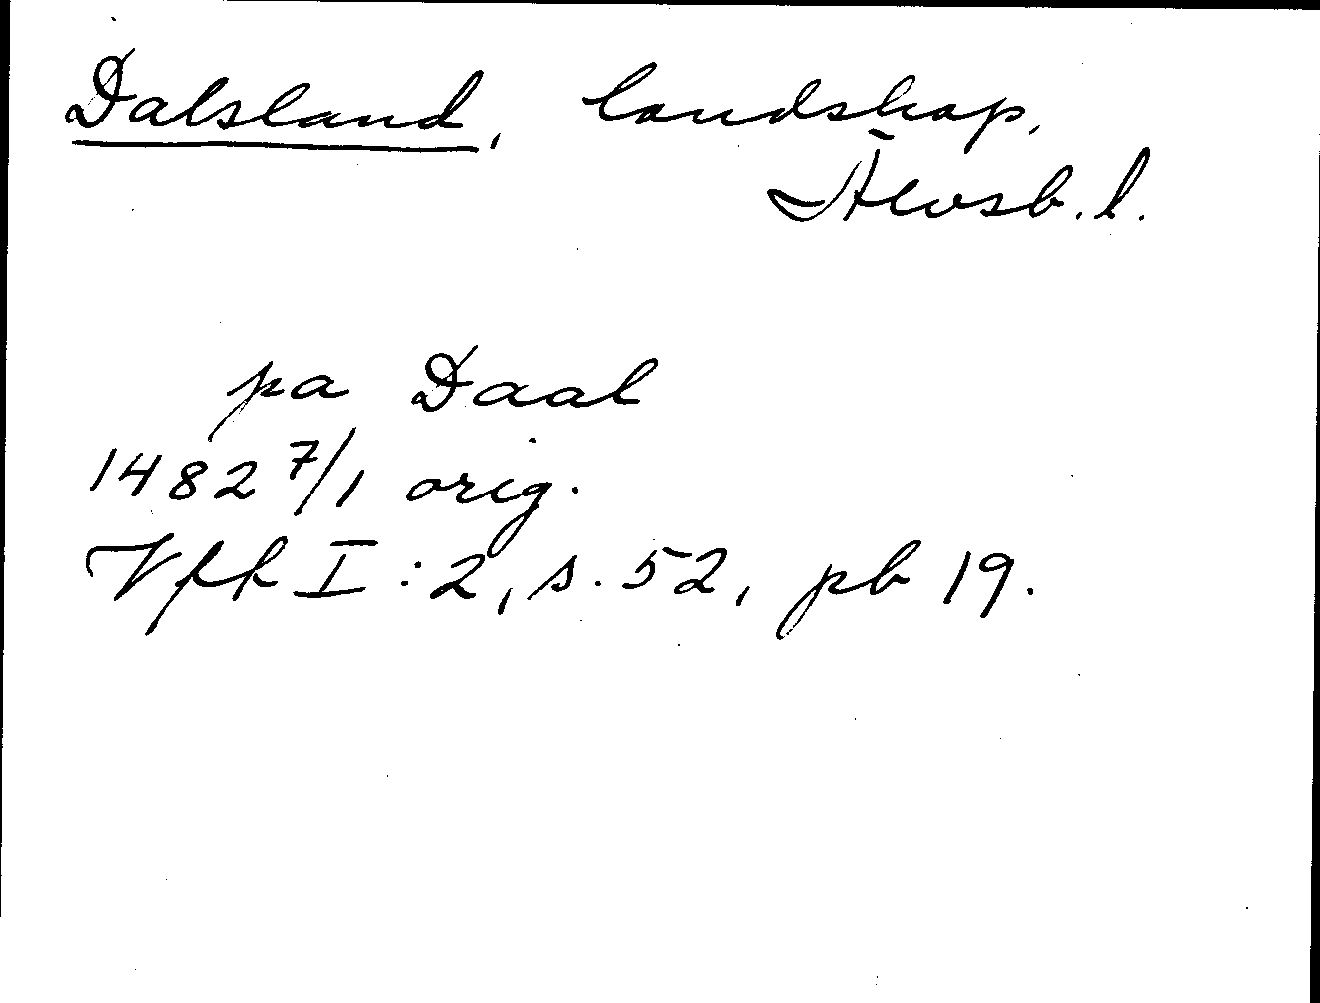 Dalsland, landskap,
Älvsb. l.
pa Daal
1482 7/1 orig.
Vfk I:2, s. 52, pb 19.